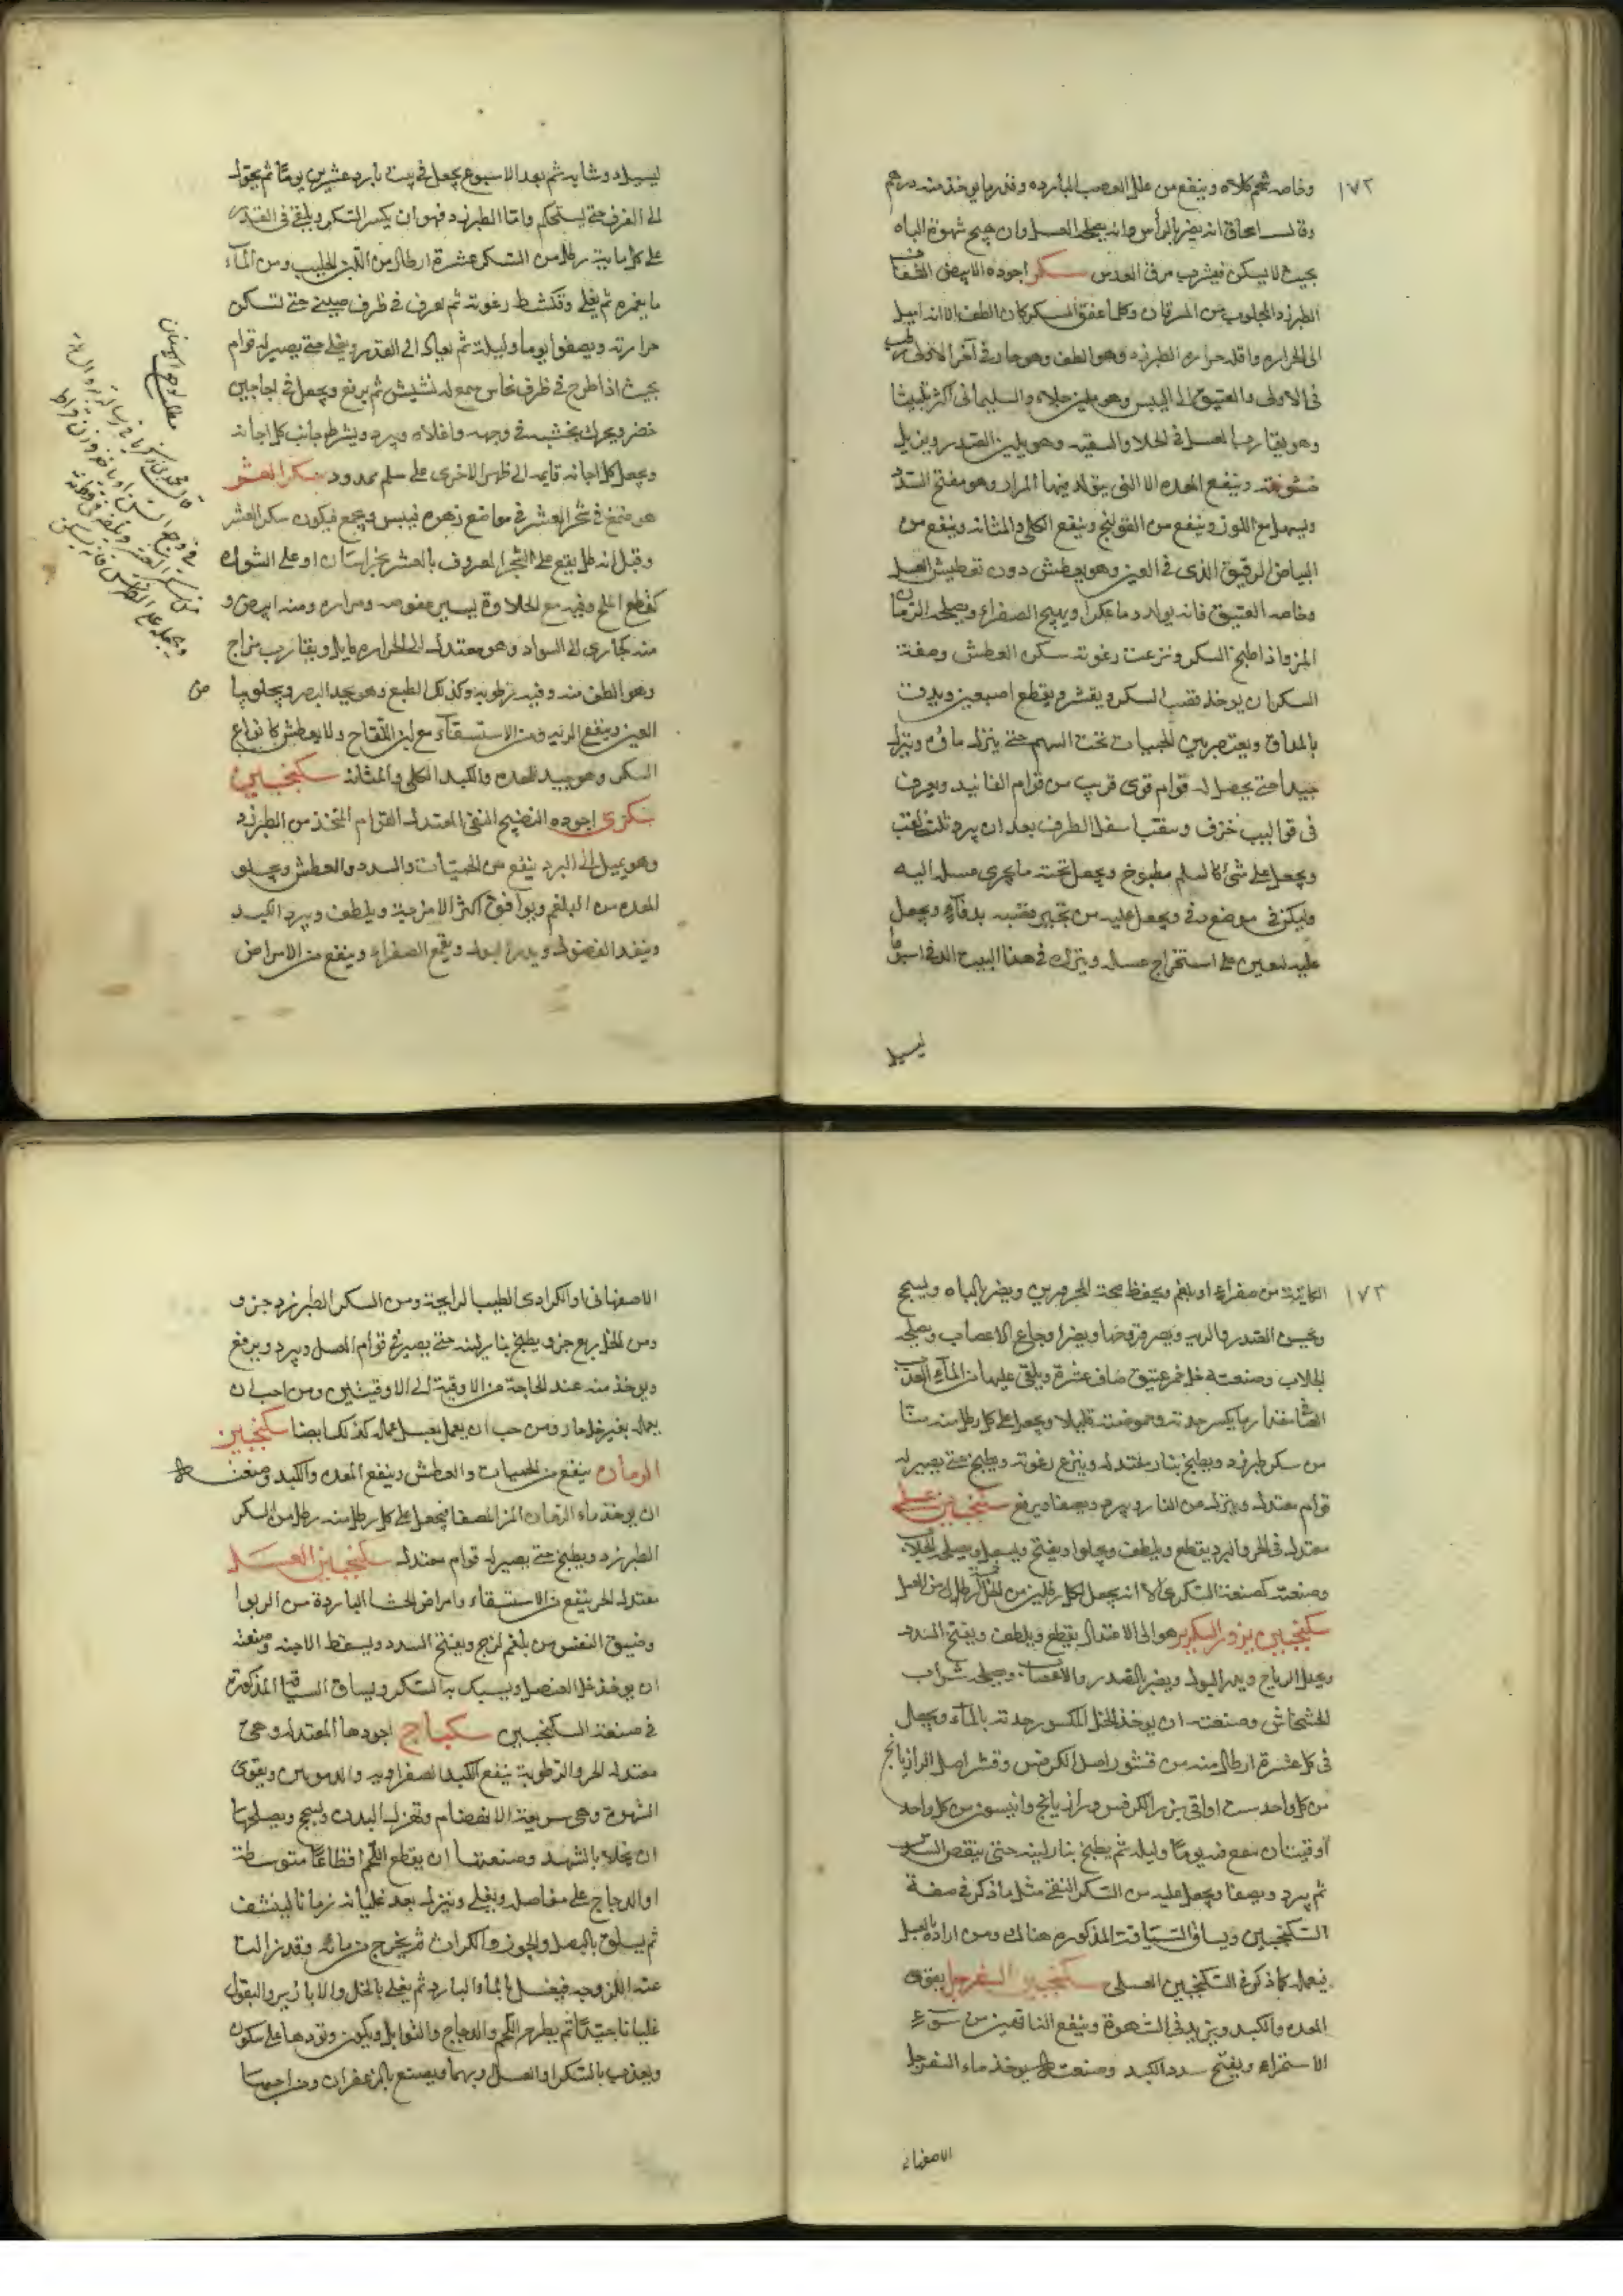 ١٧٢
وخاصه شحم كلاه وينفع من علل العصب البارده وقدر ما يوخذ منه درهم
وقال اسحاق انه يضر بالرأس وانه يصلحه العسل وان هيج شهوة الباه
بحيث لا يسكن فيشرب مرق العدس سكر اجوده الابيض الشفاف
الطبرزد المجلوب من وكلما عتق السكر كان الطف الا انه اميل
الى الحراره واقله حراره الطبرزد وهو الطف وهو حار في آخر الاولى رطب
في الاولى والعتيق الى اليبس وهو ملين جلاء والسليمانى اكثر تليينا
وهو يقارب العسل في الجلا والتنقيه وهو يلين الصدر ويزيل
خشونته وينفع المعده الا التى يتولد فيها المرار وهو مفتح السدد
ويسهل مع اللوز وينفع من القولنج وينفع الكلى والمثانه وينفع من
البياض الرقيق الذى في العين وهو يعطش دون تعطيش العسل
وخاصه العتيق فانه يولد دما عكرا ويهيج الصفراء ويصلحه الرمان
المز واذا طبخ السكر ونزعت رغوته سكن العطش وصفة
السكر ان يوخذ قصب السكر ويقشر ويقطع اصبعين ويدق
بالمداق ويعتصر بين تحت السهم حتى ينزل ماؤه وينزل
جيدا حتى يحصل له قوام قوى قريب من قوام الفانيد ويعرف
في قواليب خزف وسقب اسفل الطرف بعد ان يبرد ثلث ثقب
ويجعل على شئ كالسلم مطبوخ ويجعل تحته ما يجرى عسله اليه
وليكن في موضع دفي ويجعل عليه من وقصبه ويجعل
عليه ليعين على استخراج عسله ويترك في هذا البيت الدفي اسبوعا
ليسيل
ليسيل دوشابه ثم بعد الاسبوع يجعل في بيت بارد عشرين يوما ثم يحول
الى الغرف حتى يستحكم واما الطبرزد فهو ان يكسر السكر ويلقى في القدر
على كل مايتى رطل من السكر عشرة ارطال من اللبن الحليب ومن الماء
ما يغمره ثم يغلى وتكشط رغوته ثم يغرف في ظرف صينى حتى تسكن
حرارته ويصفوا يوما وليلة ثم يعاد الى القدر ويغلى حتى يصير له قوام
بحيث اذا طرح في ظرف نحاس سمع له نشيش ثم يرفع ويجعل في اجاجين
خضر ويحرك بخشبه في وجهه واعلاه ويبرد ويشرط جانب كل اجانه
ويجعل كل اجانه قايمه الى ظهر الاخرى على سلم ممدود سكر العشر
هو صمغ في شجر العشر في مواضع زهره فييبس ويجمع فيكون سكر العشر
وقيل انه طل يقع على الشجر المعروف بالعشر بخراسان او على الشوك
كقطع الملح وفيه مع الحلاوة يسير عفوصه ومراره ومنه ابيض و
منه حجازى الى السواد وهو معتدل الى الحراره مايل ويقارب مزاج
وهو الطف منه وفيه رطوبه وكذلك الطبع وهو يحد البصر ويجلو بياض
العين وينفع الرئه ومن الاستسقاء مع لبن اللقاح ولا يعطش كانواع
السكر وهو جيد للمعده والكبد الكلى والمثانه سكنجبين
سكرى اجوده النضيج النقى المعتدل القوام المتخذ من الطبرزد
وهو يميل الى البرد ينفع من الحميات والسدد والعطش ويجلو
المعده من البلغم ويوافق اكثر الامزجة ويلطف ويبرد الكبد
وينفذ الفضول ويدر البول ويقمع الصفراء وينفع من الامراض
١٧٣
الكاينة من صفراء او بلغم ويحفظ صحة المحرورين ويضر بالباه ويسحج
ويخشن الصدر والريه ويضر قروحها ويضر اوجاع الاعصاب ويصلحه
الجلاب وصنعته خل خمر عتيق صاف عشرة ويلقى عليها من الماء العذب
مقدار ما يكسر حدته وحموضته قليلا ويجعل على كل رطل منه منّا
من سكر طبرزد ويطبخ بنار معتدله وينزع رغوته ويطبخ حتى يصير له
قوام معتدل وينزل عن النار ويبرد ويصفا ويرفع سكنجبين عسلى
معتدل في الحر والبرد يقطع ويلطف ويجلوا ويفتح ويسهل
وصنعته كصنعة السكرى الا انه يجعل لكل رطلين من الخل رطل من العسل
سكنجبين بزور السكرى هو الى الاعتدال يقطع ويلطف ويفتح السدد
ويحلل الرياح ويدر البول ويضر بالصدر والاعصاب ويصلحه شراب
الخشخاش وصنعته ان يوخذ الخل المكسور حدته بالماء ويجعل
في كل عشرة ارطال منه من قشور اصل الكرفس وقشر اصل الرازيانج
من كل واحد ست اواقى بزر الكرفس ورازيانج وانيسون من كل واحد
اوقيتان ينقع فيه يوما وليله ثم يطبخ بنار لينه حتى ينقص السدس
ثم يبرد ويصفا ويجعل عليه من السكر النقى مثل ما ذكر في صفة
السكنجبين ويساق السياقة المذكوره هناك ومن اراده بالعسل
فيعمله كما ذكر في السكنجبين العسلى سكنجبين السفرجل يقوى
المعده والكبد ويزيد في الشهوة وينفع الناقهين من سوء
الاستمراء ويفتح سدد الكبد وصنعته يوخذ ماء السفرجل
الاصفهاني
الاصفهانى او الطيب الرايحة ومن السكر الطبرزد جزو
ومن الخل ربع جزو يطبخ بنار لينه حتى يصير في قوام العسل ويبرد ويرفع
ويوخذ منه عند الحاجة من الاوقية الى الاوقيتين ومن احب ان
يعمله بغير خل جاز ومن حب ان يعمل بعسل عمله كذلك ايضا سكنجبين
الرمان ينفع من الحميات والعطش وينفع المعده والكبد وصنعته
ان يوخذ ماء الرمان المز المصفا فيجعل على كل رطل منه رطل من السكر
الطبرزد ويطبخ حتى يصير له قوام معتدل سكنجبين العنصل
معتدل الحر ينفع من الاستسقاء وامراض الحشا الباردة من الربوا
وضيق النفس من بلغم لزج ويفتح السدد ويسقط الاجنه وصنعته
ان يوخذ خل العنصل ويسبك به السكر ويساق السياقة المذكورة
في صنعة السكنجبين سكباج اجودها المعتدله وهى
معتدله الحر والرطوبة ينفع الكبد الصفراويه والدمويين ويقوى
الشهوة وهى سريعة الانهضام وتهزل البدن وتسحج ويصلحها
ان يحلا بالشهد وصنعتها ان يقطع اللحم اقطاعا متوسطة
او الدجاج على مفاصله ويغلى وينزل بعد غليانه زمانا لينشف
ثم يسلق بالبصل والجوز والكراث ثم يخرج من مائه وقد زالت
عنه اللزوجه فيغسل بالماء البارد ثم يغلى بالخل والابازير والبقول
غليانا جيدا ثم يطرح اللحم والدجاج والتوابل ويكون وقودها على سكون
ويعذب بالسكر او العسل او بهما ويصبغ بالزعفران ومزاجها